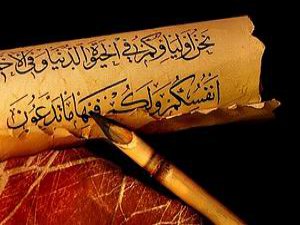 نَحْنُ أَوْلِيَاؤُكُمْ فِي الْحَيَوةِ الدُّنْيَا وَفِي الْآخِرَ
أَنفُسُكُمْ وَلَكُمْ فِيهَا مَا تَدَّعُونَ